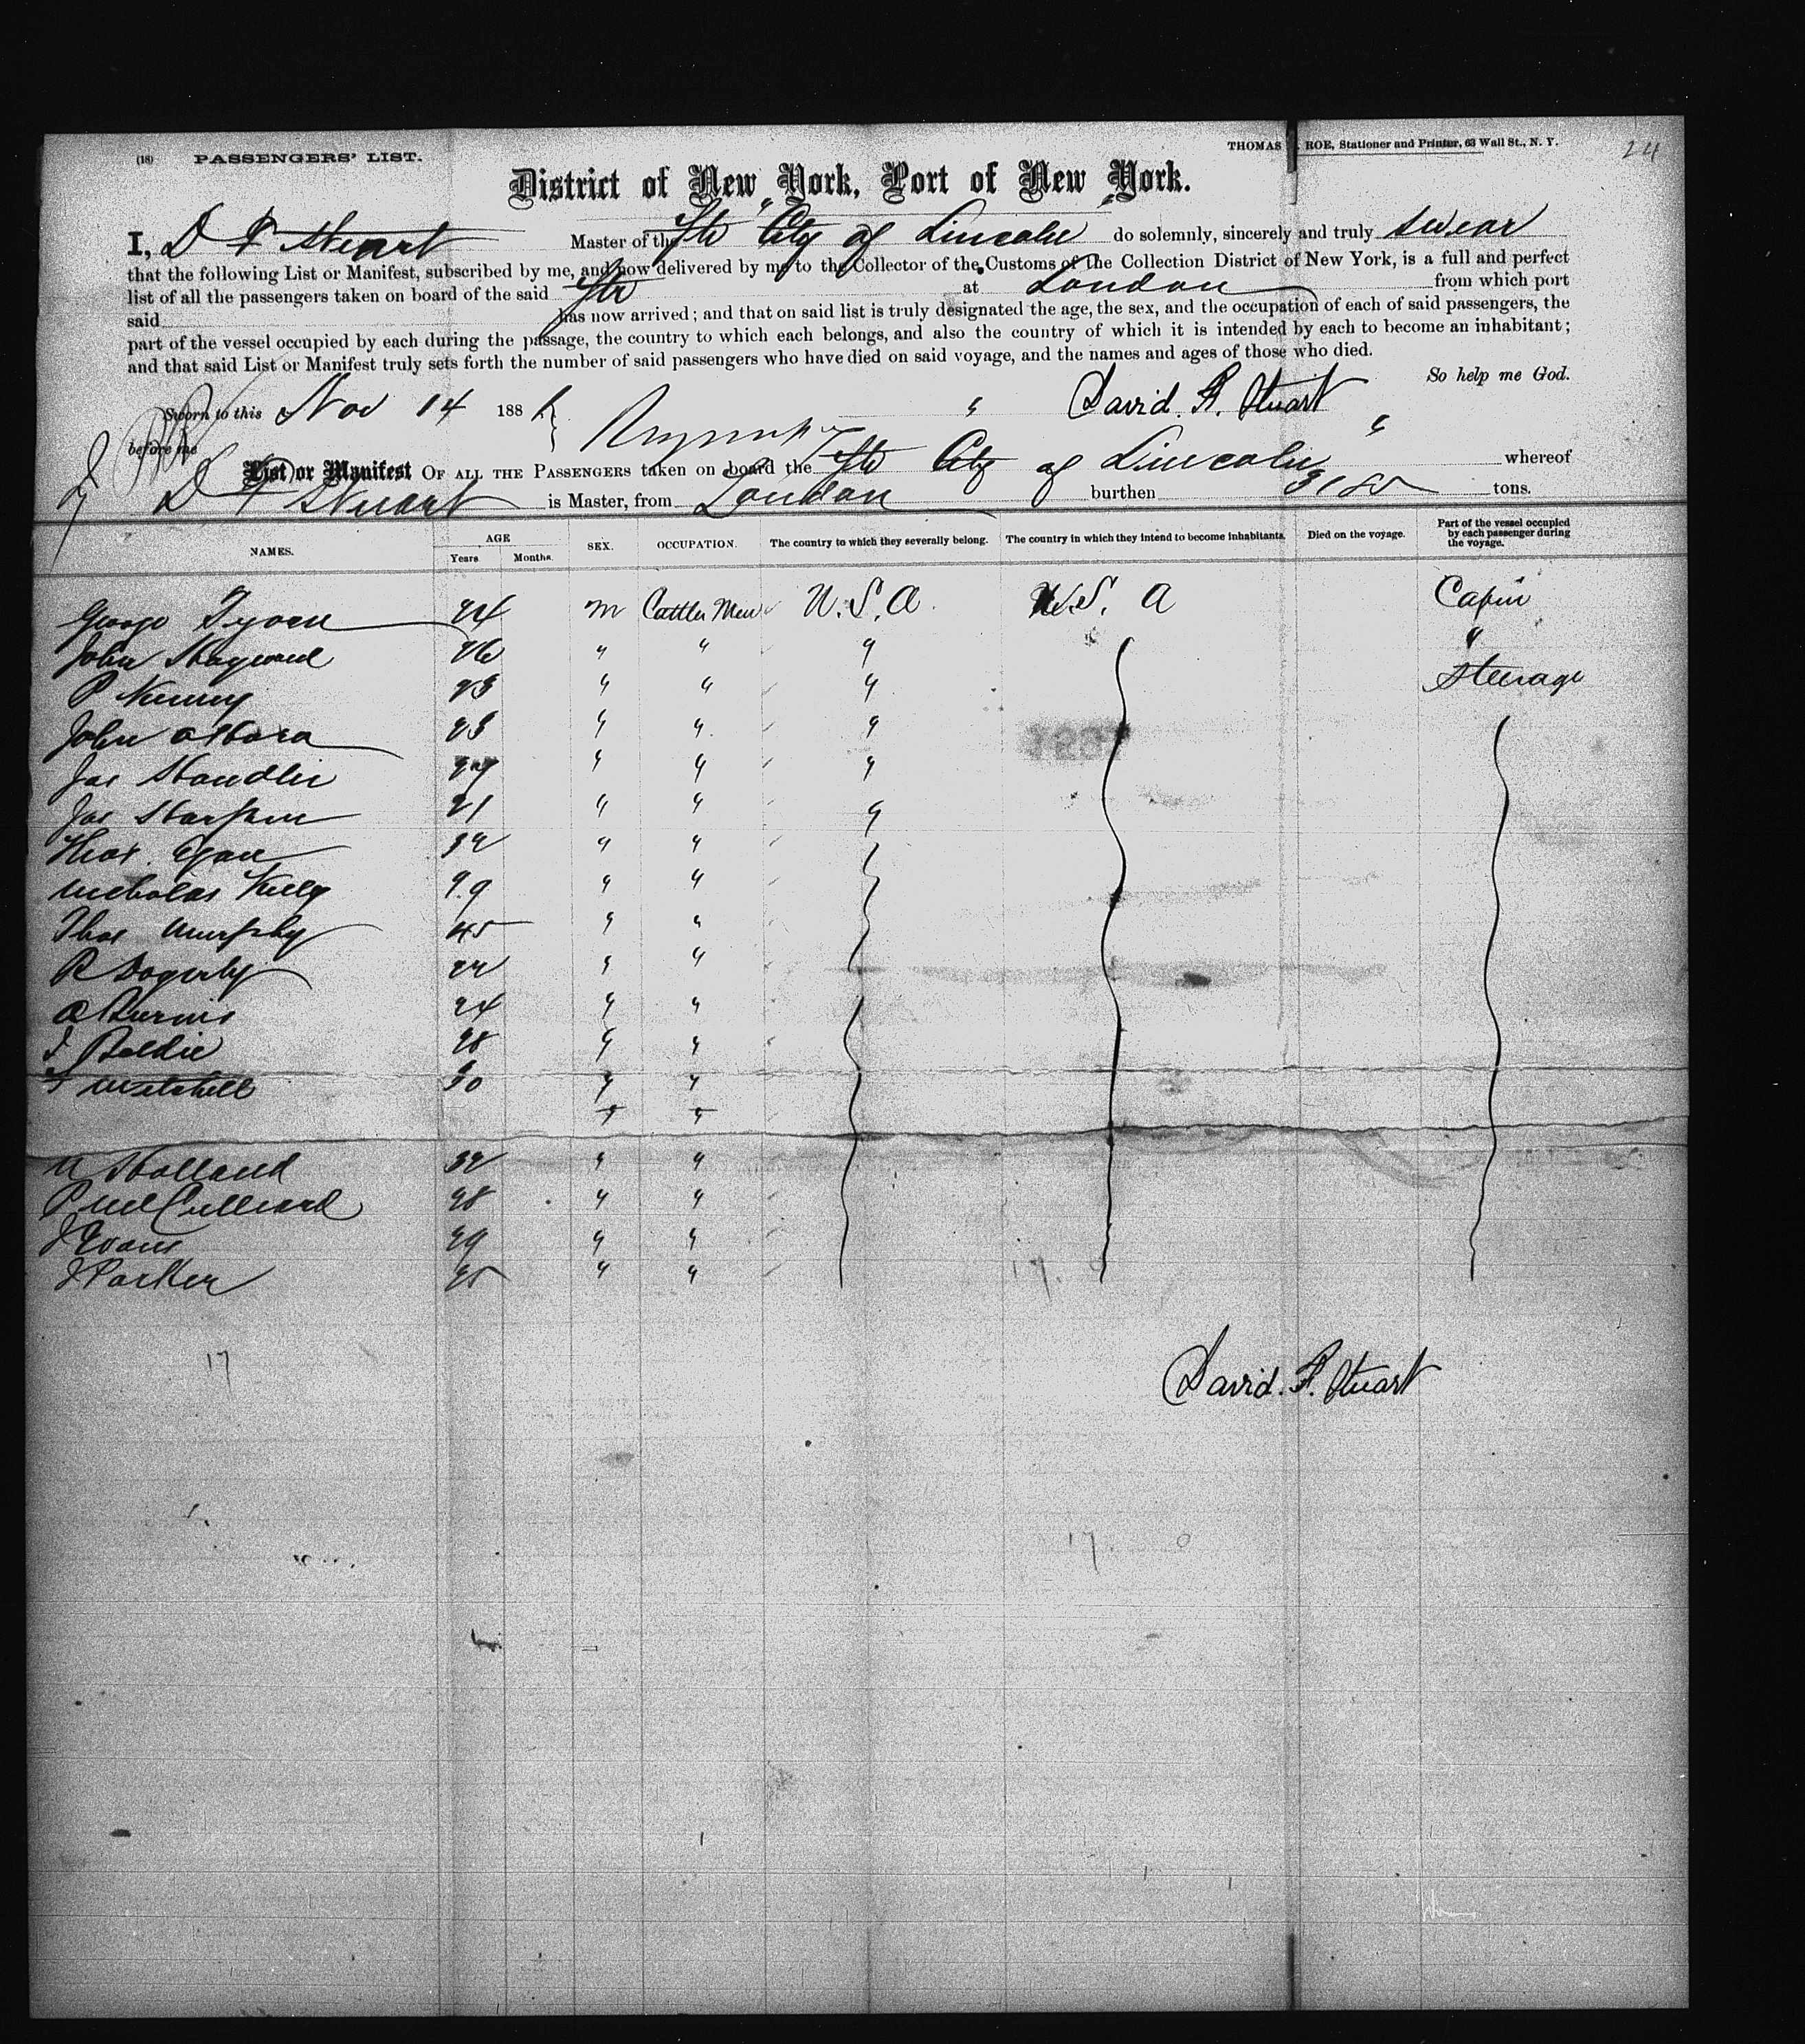 24
(18) PASSENGERS' LIST. THOMAS ROE, Stationer and Printer, 63 Wall St., N. Y.
District of New York, Port of New York.
I, D F Stuart Master of the Str "City of Lincoln" do solemnly, sincerely and truly swear
that the following List or Manifest, subscribed by me, and now delivered by me to the Collector of the Customs of the Collection District of New York, is a full and perfect
list of all the passengers taken on board of the said Str at London from which port
said has now arrived; and that on said list is truly designated the age, the sex, and the occupation of each of said passengers, the
part of the vessel occupied by each during the passage, the country to which each belongs, and also the country of which it is intended by each to become an inhabitant;
and that said List or Manifest truly sets forth the number of said passengers who have died on said voyage, and the names and ages of those who died.
So help me God.
Sworn to this Nov 14 188 David. F. Stuart
before me
List or Manifest OF ALL THE PASSENGERS taken on board the Str "City of Lincoln" whereof
D F Stuart is Master, from London burthen tons.
NAMES. AGE Years Months. SEX. OCCUPATION. The country to which they severally belong. The country in which they intend to become inhabitants. Died on the voyage. Part of the vessel occupied by each passenger during the voyage.
George 24 m Cattle Men U.S.A. U.S. A Cabin
John Hayward 26 " " " "
P Kenny 23 " " " Steerage
John O'Hara 23 " " "
Jas Handlin " " "
Jas 21 " " "
Thos. 32 " "
Nicholas Kelly 29 " "
Thos Murphy 45 " "
R Dogerty 22 " "
24 " "
28 " "
Mitchell 30 " "
" "
Holland 32 " "
P 28 " "
J Evans 29 " "
J Parker 25 " "
17.
17
David. F. Stuart
17. 0